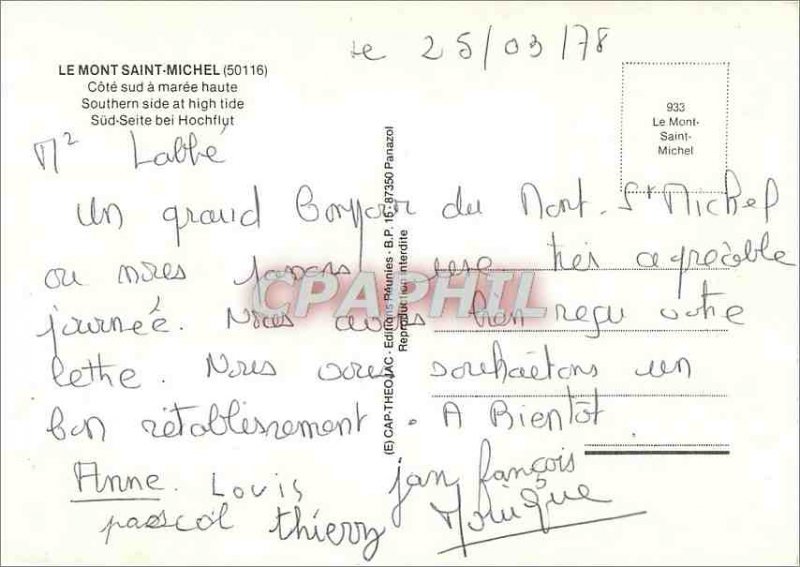 le 25/03/78
LE MONT SAINT-MICHEL (50116)
Côté sud à marée haute
Southern side at high tide
Süd-Seite bei Hochflut
933
Le Mont-
Saint-
Michel
Mr Labbé
Un grand Bonjour du Mont-St Michel
ou nous passons une très agréable
journée. Nous avons bien reçu votre
lettre. Nous vous souhaitons un
bon rétablissement. A Bientôt
Anne. Louis jan françois
pascal thierry Monique
(E) CAP-THEOJAC - Editions Réunies - B.P. 16 - 87350 Panazol
Reproduction interdite
CPAPHIL